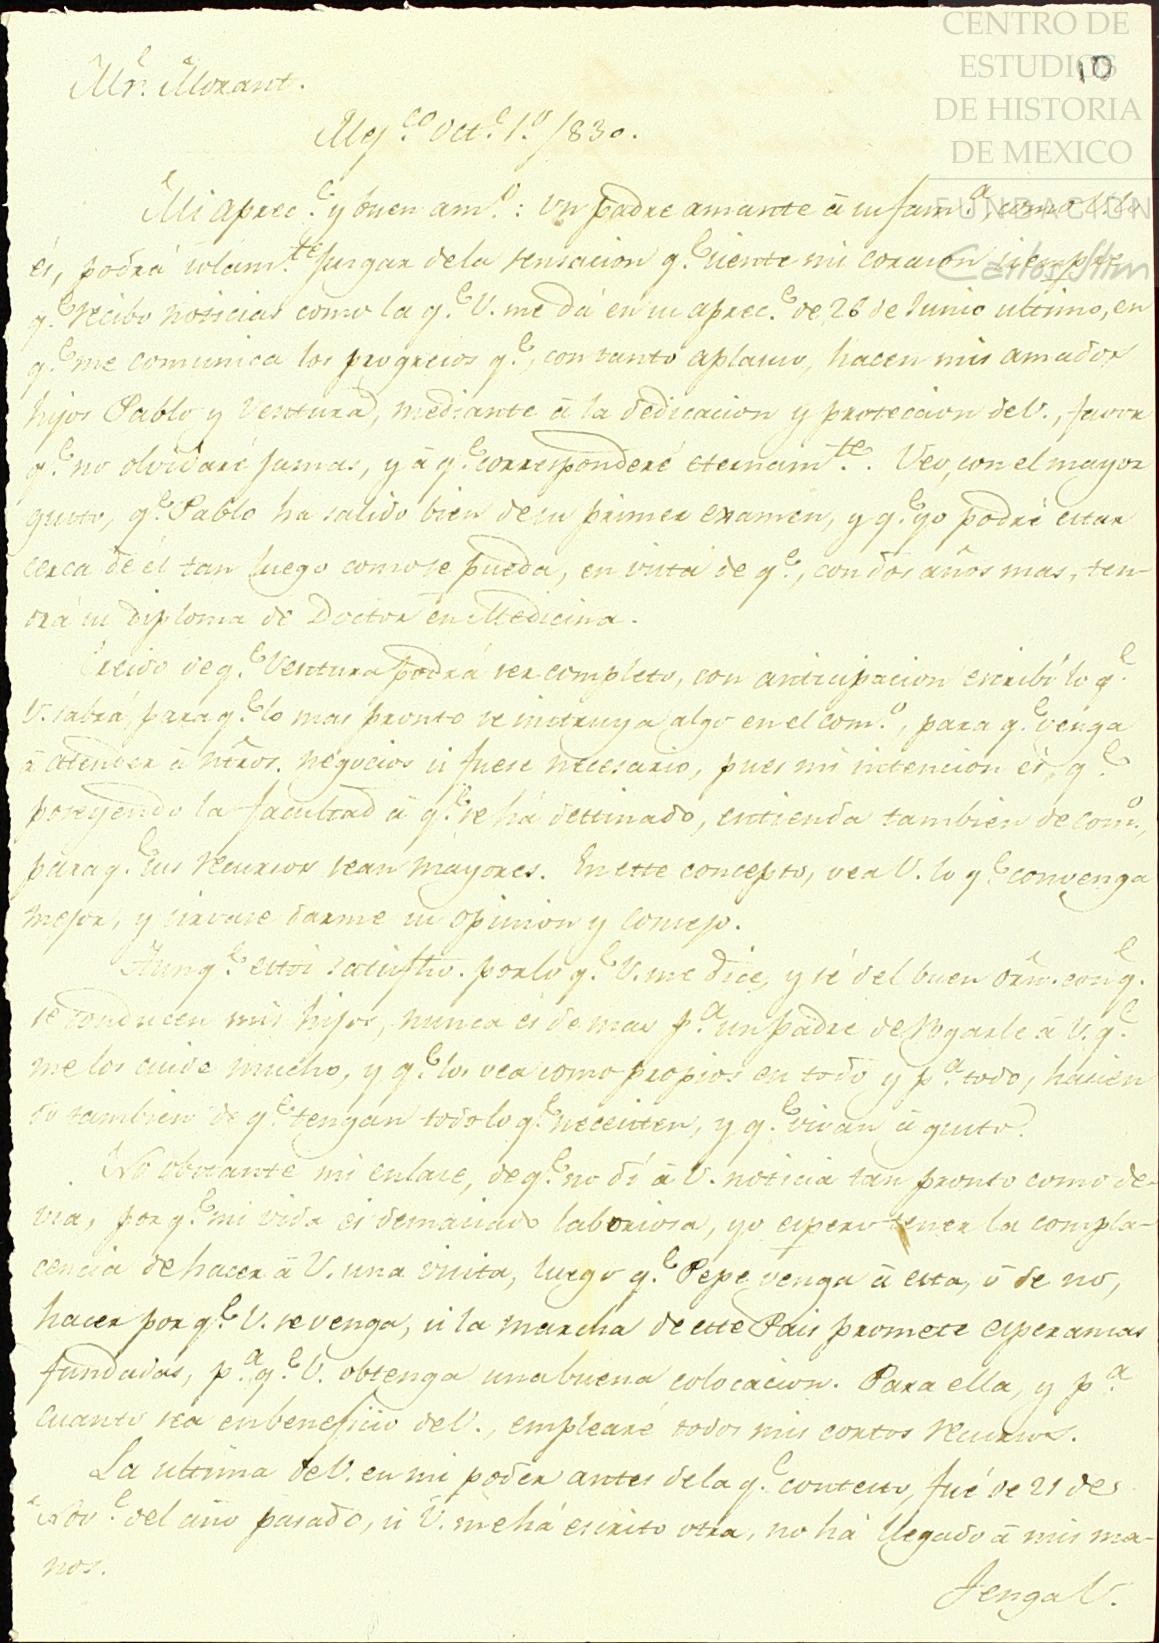 CENTRO DE
ESTUDIOS
DE HISTORIA
DE MEXICO
FUNDACIÓN
Carlos Slim
10
Mr. Morant.
Mejco Octe 1o /830.
Mi aprece y buen amo: Un padre amante á su fama como V. lo
és, podrá solamte juzgar dela sensacion qe siente mi corazon siempre
qe recibo noticias como la qe V. me dá en su aprece de 26 de Junio ultimo, en
qe me comunica los progrecios qe, con tanto aplauso, hacen mis amados
hijos Pablo y Ventura, mediante á la dedicacion y proteccion de V., favor
qe no olvidaré jamas, y á qe corresponderé eternamte. Veo, con el mayor
gusto, qe Pablo ha salido bien de su primer examen, y qe yo podré estar
cerca de él tan luego como se pueda, en vista de qe, con dos años mas, ten-
drá su diploma de Doctor en Medicina.
Creido de qe Ventura podrá ser completo, con anticipacion escribí lo qe
V. sabrá, para qe lo mas pronto se instruya algo en el como, para qe venga
á atender á ntros. negocios si fuese necesario, pues mi intencion és, qe
poseyendo la facultad á qe se há destinado, entienda tambien de como,
para qe sus recursos sean mayores. En este concepto, vea V. lo qe convenga
mejor, y sirvase darme su opinion y consejo.
Aunqe estoi satisfho. por lo qe V. me dice, y sé del buen orñ. con qe
se conducen mis hijos, nunca és de mas pa un padre de rogarle á V. qe
me los cuide mucho, y qe los vea como propios en todo y pa todo, hacien
do tambien de qe tengan todo lo qe necesiten, y qe vivan á gusto.
No obstante mi enlace, de qe no dí á V. noticia tan pronto como de-
via, por qe mi vida es demaciado laboriosa, yo espero tener la compla-
cencia de hacer á V. una visita, luego qe Pepe venga á esta, ó de no,
hacer por qe V. se venga, si la marcha de este Pais promete esperanzas
fundadas, pa qe V. obtenga una buena colocacion. Para ella, y pa
cuanto sea en beneficio de V., emplearé todos mis cortos recursos.
La ultima de V. en mi poder antes de la qe contesto, fué de 21 de
Nove del año pasado, si V. me há escrito otra, no há llegado á mis ma-
nos.
Tenga V.